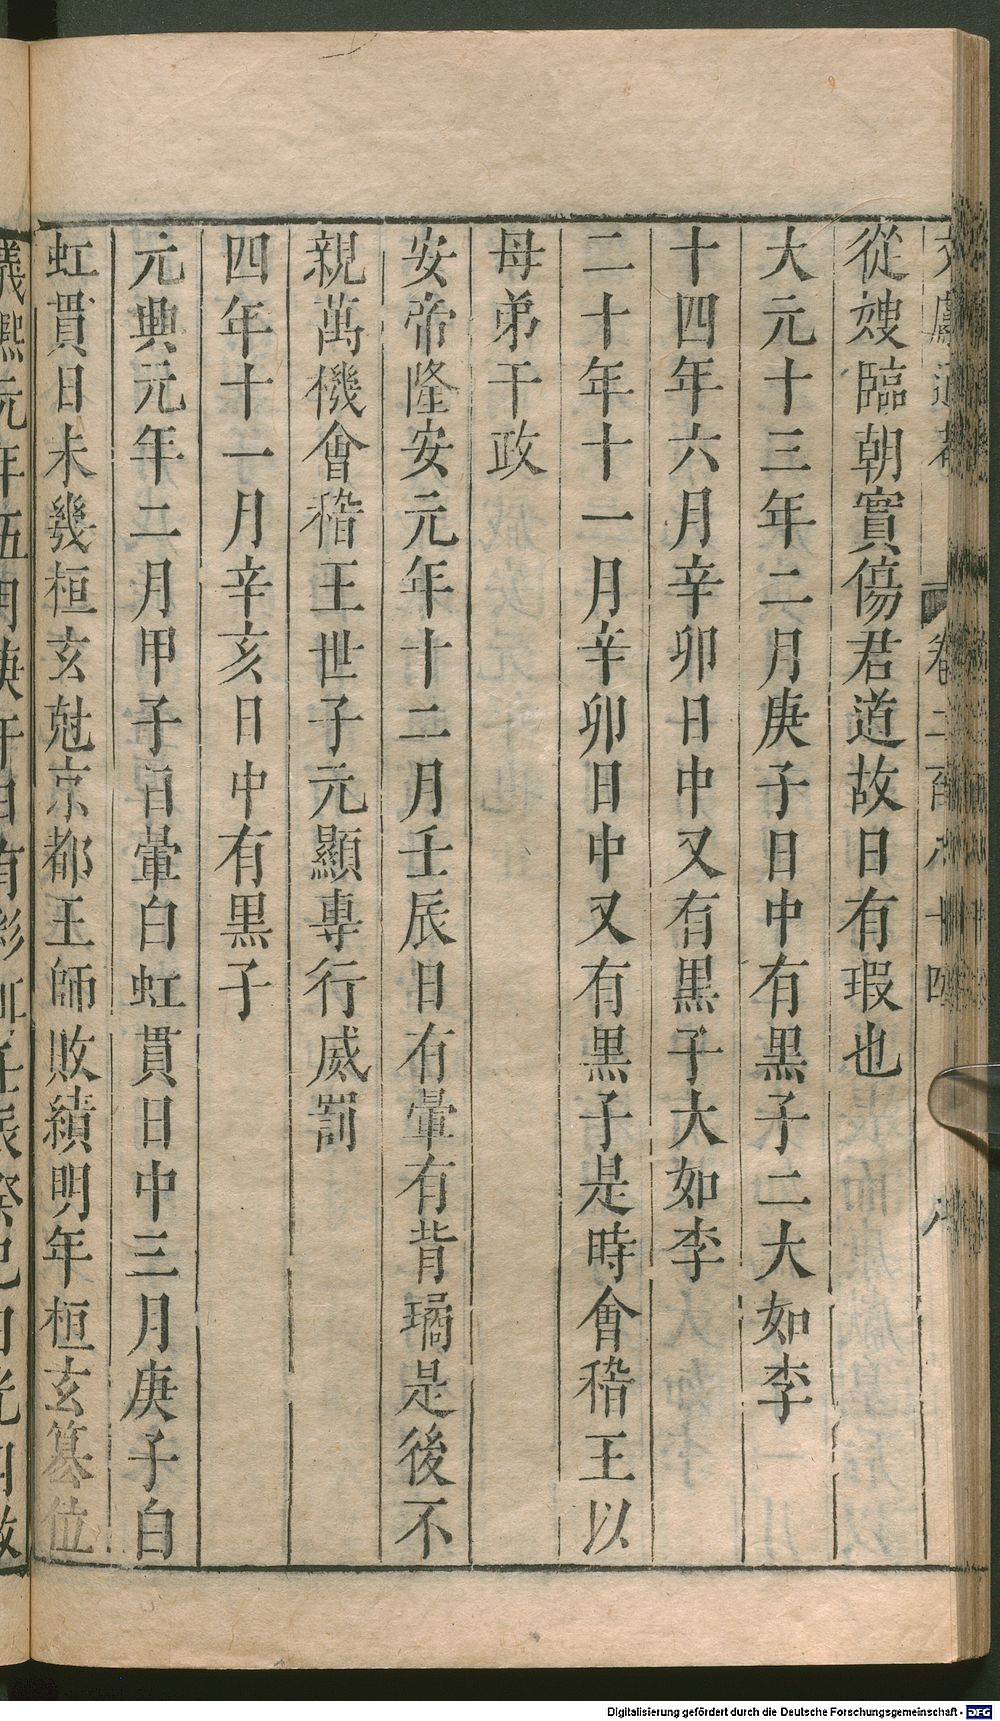 從嫂臨朝實傷君道故日有瑕也
大元十三年二月庚子日中有黒子二大如李
十四年六月辛卯日中又有黒子大如李
二十年十一月辛卯日中又有黒子是時會稽王以
母弟干政
安帝隆安元年十二月壬辰日有暈有背璚是後不
親萬機會稽王世子元顯專行威罰
四年十一月辛亥日中有黒子
元興元年二月甲子日暈白虹貫日中三月庚子白
虹貫日未幾桓玄尅京都王師敗績明年桓玄簒位
Digitalisierung gefördert durch die Deutsche Forschungsgemeinschaft - DFG